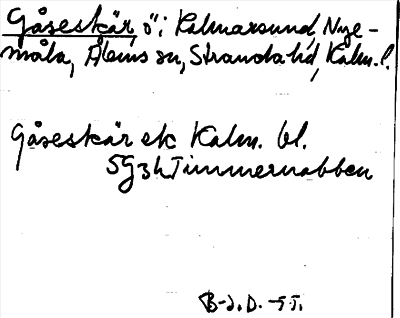 Gåseskär, ö i Kalmarsund, Nye-
måla, Ålems sn, Stranda hd, Kalm. l.
Gåseskär ek Kalm. bl.
5G3h Timmernabben